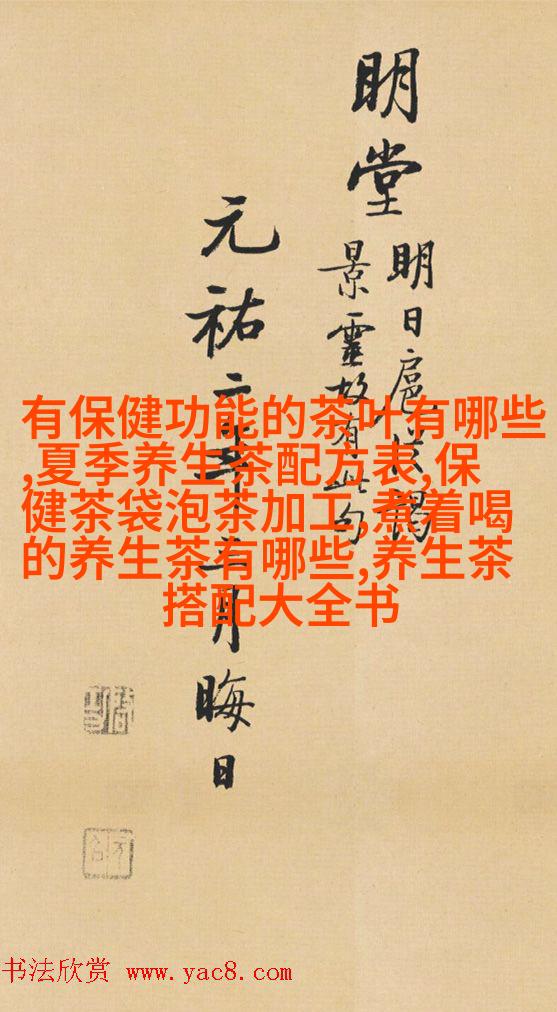 明堂
明日扈從謁
景靈故有此句
元祐月晦日
有保健功能的茶叶有哪些
,夏季养生茶配方表,保
健茶袋泡茶加工,煮着喝
的养生茶有哪些,养生茶
搭配大全书
书法欣赏 www.yac8.com